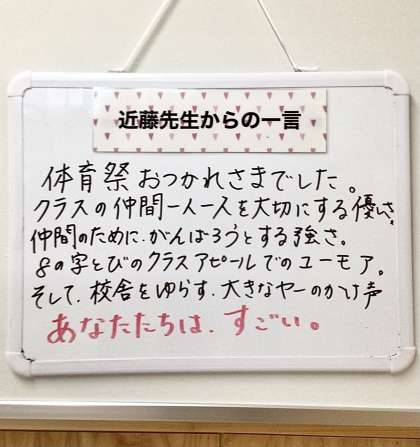 近藤先生からの一言
体育祭おつかれさまでした。
クラスの仲間一人一人を大切にする優しさ。
仲間のために、がんばろうとする強さ。
8の字とびのクラスアピールでのユーモア。
そして、校舎をゆらす、大きなヤーのかけ声
あなたたちは、すごい。